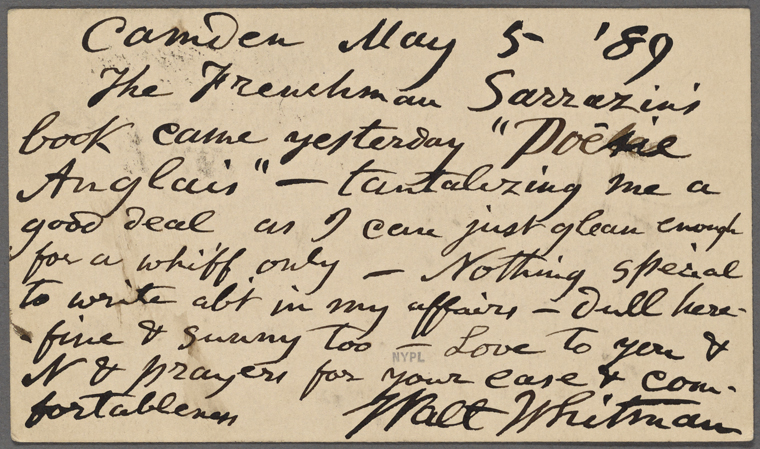 Camden May 5 '89
The Frenchman Sarrazin's
book came yesterday "Poësie
Anglais" — tantalizing me a
good deal as I can just glean enough
for a whiff only — Nothing special
to write abt in my affairs — dull here -
fine & sunny too — Love to you &
N & prayers for your ease & com-
fortableness Walt Whitman
NYPL